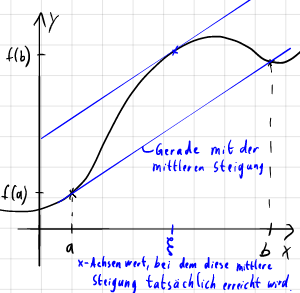 y
f(b)
Gerade mit der
mittleren Steigung
f(a)
a
ξ
b
x
x-Achsenwert, bei dem diese mittlere
Steigung tatsächlich erreicht wird